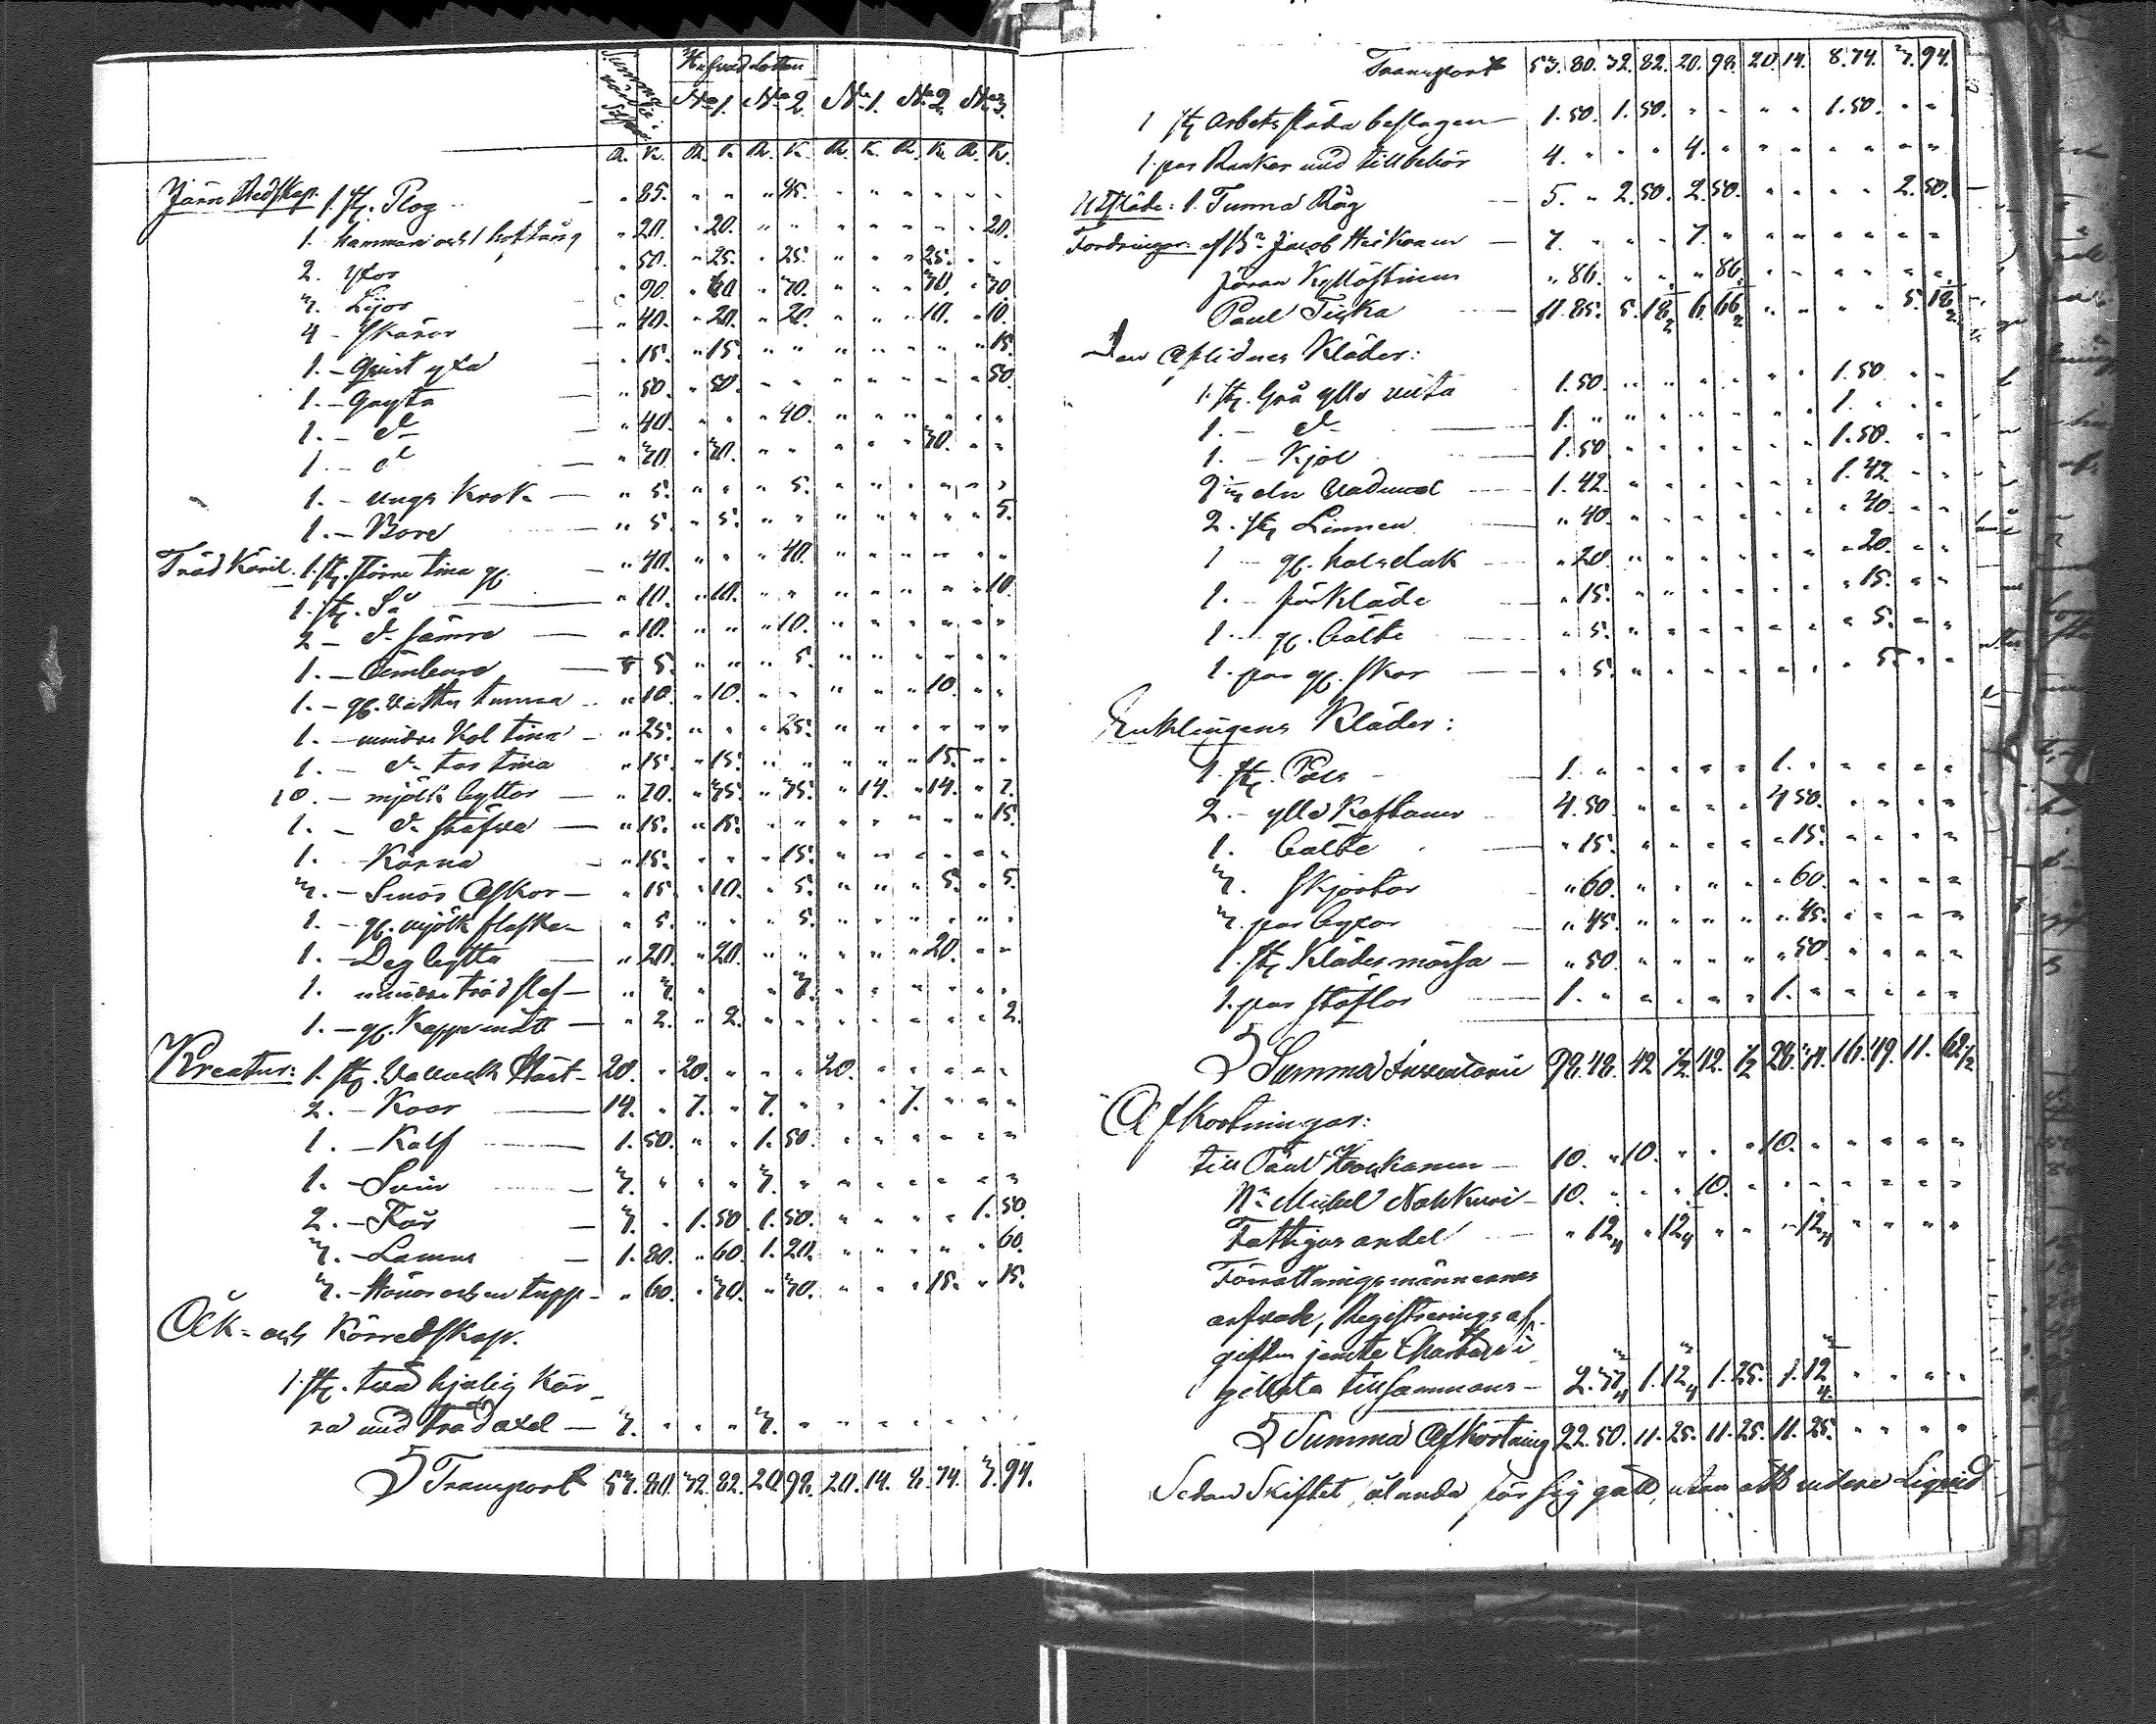 Summa
värde i
Silfver
Hufvud Lotten
No 1. No 2. No 1. No 2. No 3.
R. K. R. K. R. K. R. K. R. K. R. K.
Järn Redskap. 1 st. Plog — " 85. " " " 45. " " " " " "
1. hammare och 1 hoftång " 20. " 20. " " " " " " " 20.
2. yxor " 50. " 25. " 25. " " " 25. " "
3. Lijor " 90. " " 30. " " " 30. " 30
4 - Skäror — " 40. " 20. " 20. " " " 10. " 10.
1. - Qvist yxa — " 15. " 15. " " " " " " " 15.
1. - Gryta — " 50. " 50. " " " " " " " 50.
1. - do — " 40. " " " 40. " " " " " "
1. - do — " 30. " 30. " " " " " 30. " "
1. - ungs krok — " 5. " " " 5. " " " " " "
1. - Bore — " 5. " 5. " " " " " " " 5.
Träd Käril. 1. st. större tina gl. " 40. " " " 40. " " " " " "
1. st. Så — " 10. " 10. " " " " " " " 10.
2 - do sämre — " 10. " " " 10. " " " " " "
1. - Ämbare — " 5. " " " 5. " " " " " "
1. - gl. vatten tunna - " 10. " 10. " " " " " 10. " "
1. - mindre Kol tina - " 25. " " " 25. " " " " " "
1. - do tina " 15. " 15. " " " " " 15. " "
10. - mjölk byttor — " 70. " 35. " 35. " 14. " 14. " 7.
1. - do stäfva — " 15. " 15. " " " " " " " 15.
1. Kärna " 15. " " " 15. " " " " " "
3. - Smör Askor — " 15. " 10. " 5. " " " 5. " 5.
1. - gl. mjölk flaska - " 5. " " " 5. " " " " " "
1. - Deg bytta " 20. " 20. " " " " " 20. " "
1. mindre träd flas — " 3. " " " 3. " " " " " "
1. - gl. Kappe mått — " 2. " 2. " " " " " " " 2.
Kreatur: 1. st. Vallack Häst - 20. " 20. " " " 20. " " " " "
2. - Koor — 14. " 7. " 7. " " " 7. " " "
1. - Kalf — 1. 50. " " 1. 50. " " " " " "
1. - Svin — 3. " " " 3. " " " " " " "
2. - Får — 3. " 1. 50. 1. 50. " " " " 1. 50.
3. - Lamm — 1. 80. " 60. 1. 20. " " " " " 60.
3. - Hönor och en tupp - " 60. " 30. " 30. " " " 15. " 15.
Åk- och Körredskap.
1 st. två hjulig kär-
ra med träd axel — 3. " " " 3. " " " " " " "
Transport 53. 80. 32. 82. 20. 98. 20. 14. 8. 74. 3. 94.
Transport 53. 80. 32. 82. 20. 98. 20. 14. 8. 74. 3. 94.
1 st. Arbets släda beslagen — 1. 50. 1. 50. " " " " 1. 50. " "
1. par med tillbehör 4. " " " 4. " " " " " " "
Utsäde: 1. Tunna Råg — 5. " 2. 50. 2. 50. " " " " 2. 50.
Fordringar: af Bn Jacob — 7. " " " 7. " " " " " " "
Jöran " 86. " " " 86. " " " " " "
Paul Tiska 11. 85. 5. 18 1/2 6. 66 1/2 " " " " 5. 18 1/2
Den Aflidnes Kläder:
1. st. Grå ylle 1. 50. " " " " " " 1. 50 " "
1. - do — 1. " " " " " " " 1. " " "
1. - Kjol 1. 50 " " " " " " 1. 50. " "
aln Vadmal — 1. 42. " " " " " " 1. 42. " "
2. st. Linnen " 40. " " " " " " " 40. " "
1 - gl. halsduk " 20. " " " " " " " 20. " "
1. - förkläde " 15. " " " " " " " 15. " "
1. - gl. bälte " 5. " " " " " " " 5. " "
1. par gl. skor " 5. " " " " " " " 5. " "
Enklingens Kläder:
1. st. Päls - 1. " " " " " 1. " " " " "
2. - ylle Kaftaner 4. 50. " " " " 4. 50. " " " "
1. bälte " 15. " " " " " 15. " " " "
3. Skjortor " 60. " " " " " 60. " " " "
3. par byxor " 45. " " " " " 45. " " " "
1. st. Klädes mössa — " 50. " " " " " 50. " " " "
1. par stöflor 1. " " " " " 1. " " " " "
Summa Inventarii 98. 48. 42 1/2 42. 1/2 28. 34. 16. 49. 11. 62 1/2
Afkortningar:
till Paul — 10. " 10. " " " 10. " " " " "
Nn Michel Nokkusi - 10. " " " 10. " " " " " " "
Fattigas andel " 12 3/4 " 12 3/4 " " " 12 3/4 " " " "
Förrättningsmännernes
arfvode, Registrerings af-
giften jemte Chartæ
gillita tillsammans — 2. 37 1. 12 1. 25. 1. 12 " " " "
Summa Afkortning 22. 50. 11. 25. 11. 25. 11. 25. " " " "
Sedan Skiftet, sålunda för sig gått, utan att vidare Liqvid